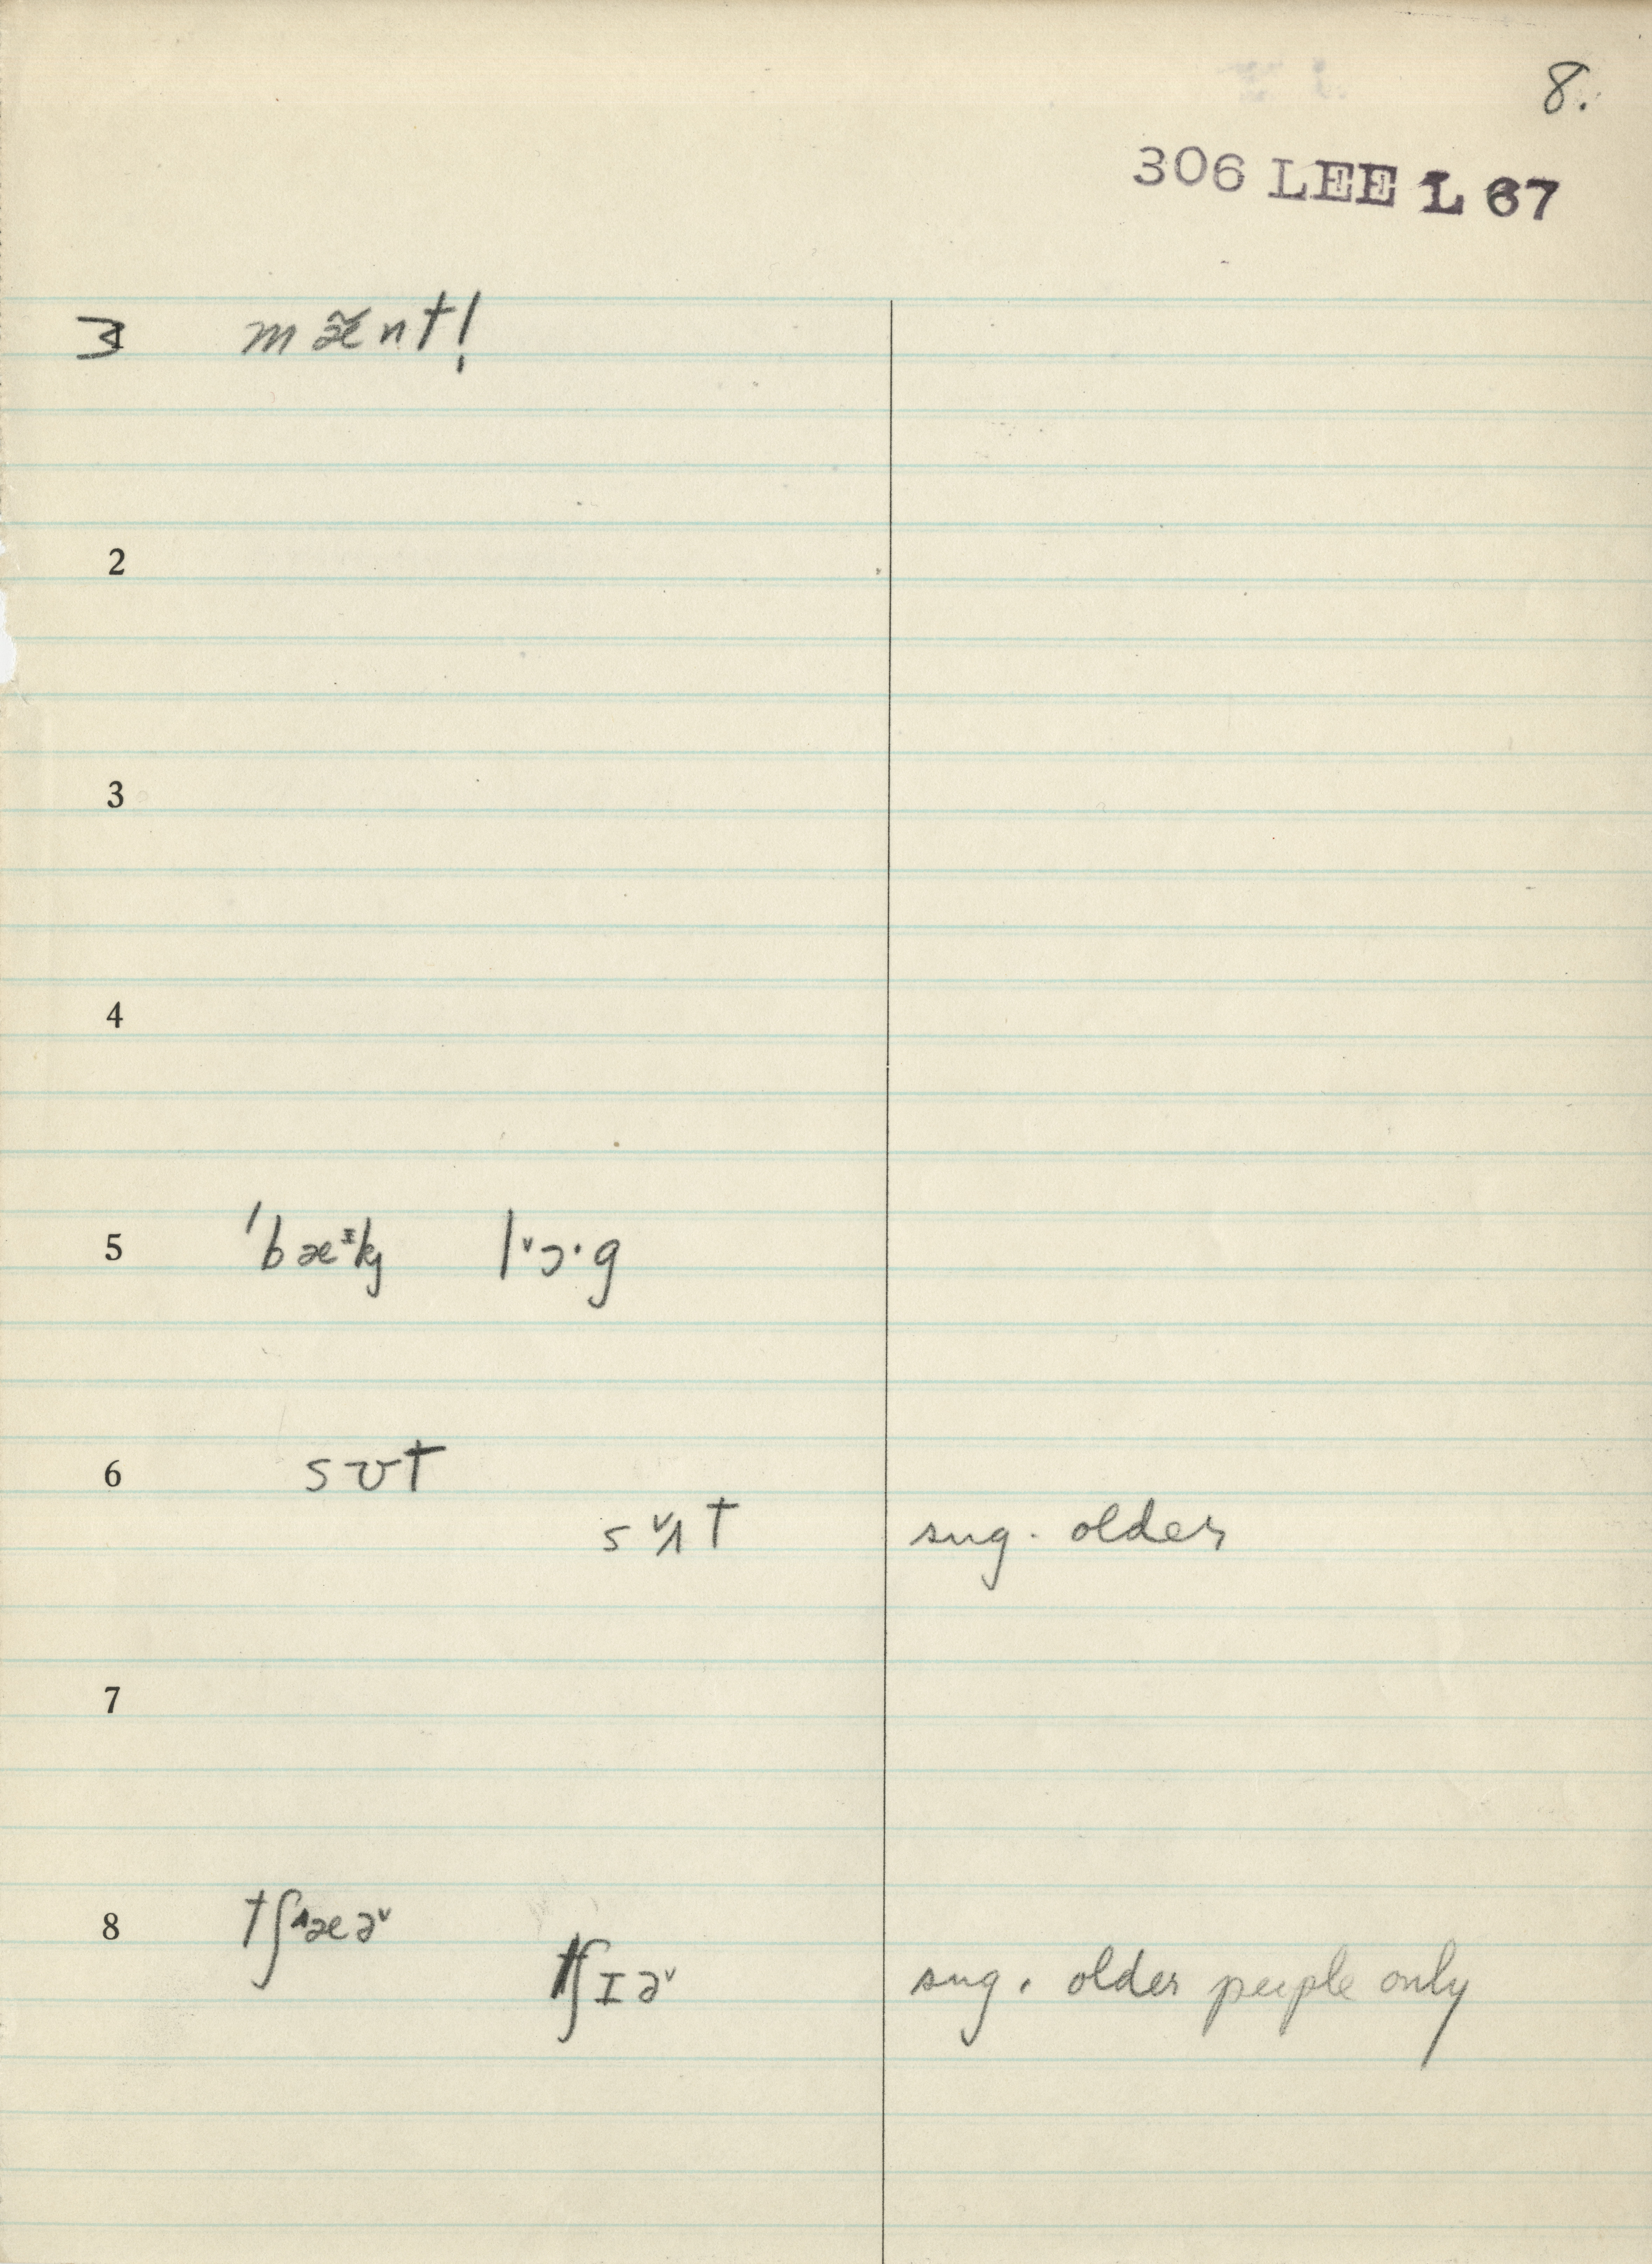 8.
306 LEE L 67
3 mæ̃nt!
2
3
4
5 ˈbæᶦkj l˅ɔ·g
6 sʊt
s˅ʌt sug. older
7
8 tʃ˄æə˅
tʃɪə˅ sug. older people only